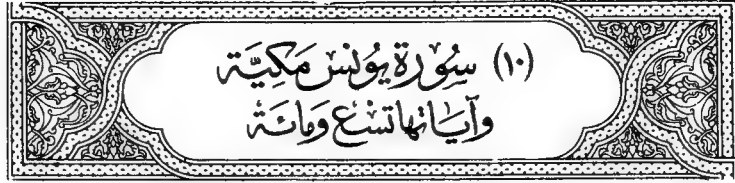 (١٠) سُورَة يُونسَ مَكِيَّة
وآيَاتهَا تسْع وَمائَة